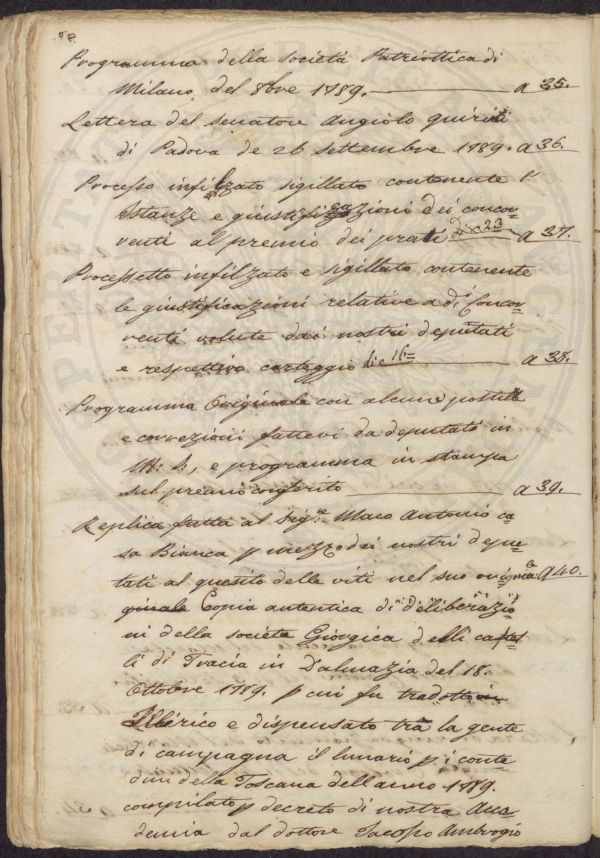 58.
Programma della società Patriottica di
Milano del 8bre 1789. a 35.
Lettera del senatore Angiolo quirini
di Padova de 26 settembre 1789. a 36.
Processo infilzato sigillato contenente l'
istanze e giustificazioni dei concor=
renti al premio dei prati di c 23 a 37.
Processetto infilzato e sigillato contenente
le giustificazioni relative a di concor=
renti volute dai nostri deputati
e respettivo carteggio di c 16= a 38.
Programma Originale con alcune postille
e correzioni fattevi da deputati in
M: S:, e programma in stampa
sul premio conferito a 39.
Replica fatta al Sigre. Marco Antonio ca=
sa Bianca p mezzo dei nostri depu=
tati al quesito delle viti nel suo origina=le a 40.
ginale Copia autentica di deliberazio
ni della società Giorgica delli castel
li di Tracia in Dalmazia del 18.
Ottobre 1789. p cui fu tradotto in
Illirico e dispensato tra la gente
di campagna il lunario p i conta=
dini della Toscana dell anno 1789.
compilato p decreto di nostra Acca=
demia dal dottore Jacopo Ambrogio